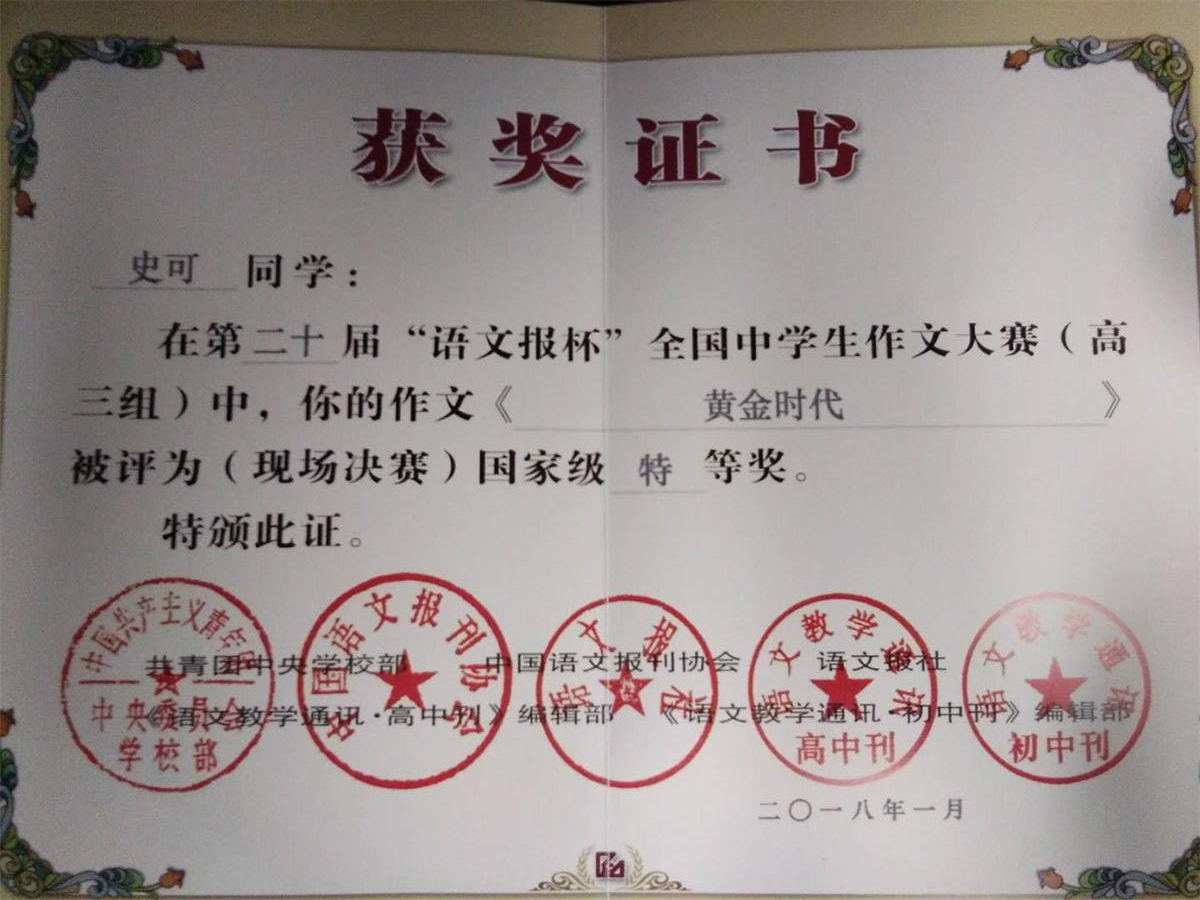 获奖证书
史可 同学：
在第二十届“语文报杯”全国中学生作文大赛（高
三组）中，你的作文《黄金时代》
被评为（现场决赛）国家级 特 等奖。
特颁此证。
共青团中央学校部 中国语文报刊协会 语文报社
《语文教学通讯·高中刊》编辑部 《语文教学通讯·初中刊》编辑部
中国共产主义青年团
中央委员会
学校部
中国语文报刊协会
语文报社
语文教学通讯
高中刊
语文教学通讯
初中刊
二〇一八年一月